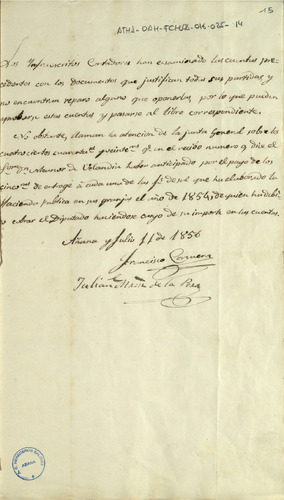 15
ATHA-DAH-FCHSZ-016-025-14
Los Infrascritos Contadores han examinado las cuentas pre
cedentes con los documentos que justifican todas sus partidas, y
no encuentran reparo alguno que oponerlas, por lo que pueden
aprobarse estas cuentas y pasarse al libro correspondiente.
No obstante, llaman la atencion de la junta General sobre los
cuatrocientos cuarenta y en el recibo numero 9 dice el
de Velandia haber anticipado por el pago de los
cinco de a cada una de las f.s de sal que ha elaborado la
Hacienda publica en sus granjas el año de 1854, de quien ha debi
do cobrar el Diputado haciendose cargo de su importe en las cuentas.
Añana y Julio 11 de 1856
Francisco
Julian de la
AÑANA